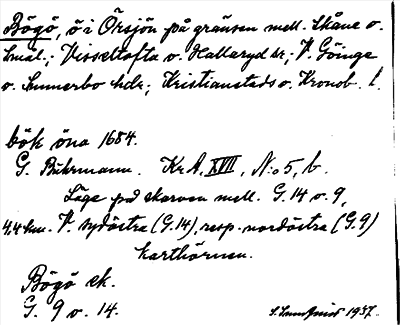 Bögö, ö i Örsjön på gränsen mell. Skåne o.
Smål.; Visseltofta o. Hallaryd sr; V. Göinge
o. Sunnerbo hdr; Kristianstads o. Kronob. l.
bök öna 1684.
G. Buhrmann. Kr. A. XVII, N:o 5, b.
Läge på skarven mell. G. 14 o. 9,
4,4 km. V. sydöstra (G. 14), resp. nordöstra (G. 9)
karthörnen.
Bögö ek.
G. 9 o. 14.
1937.